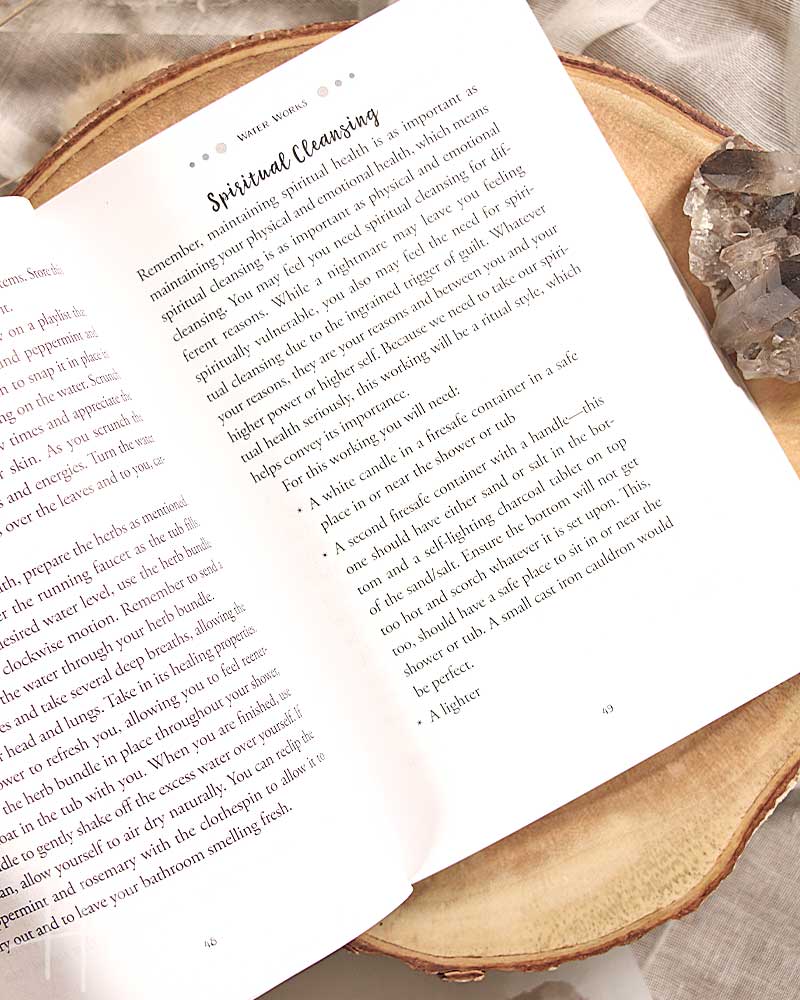 tems. Store this
nt.
y on a playlist that
nd peppermint and
n to snap it in place in
ng on the water. Scrunch
w times and appreciate the
r skin. As you scrunch the
s and energies. Turn the water
over the leaves and to you, car-
th, prepare the herbs as mentioned
er the running faucet as the tub fills.
desired water level, use the herb bundle
clockwise motion. Remember to send a
the water through your herb bundle.
es and take several deep breaths, allowing the
r head and lungs. Take in its healing properties.
ower to refresh you, allowing you to feel reener-
the herb bundle in place throughout your shower,
oat in the tub with you. When you are finished, use
dle to gently shake off the excess water over yourself. If
an, allow yourself to air dry naturally. You can reclip the
ppermint and rosemary with the clothespin to allow it to
ry out and to leave your bathroom smelling fresh.
48
Water Works
Spiritual Cleansing
Remember, maintaining spiritual health is as important as
maintaining your physical and emotional health, which means
spiritual cleansing is as important as physical and emotional
cleansing. You may feel you need spiritual cleansing for dif-
ferent reasons. While a nightmare may leave you feeling
spiritually vulnerable, you also may feel the need for spiri-
tual cleansing due to the ingrained trigger of guilt. Whatever
your reasons, they are your reasons and between you and your
higher power or higher self. Because we need to take our spiri-
tual health seriously, this working will be a ritual style, which
helps convey its importance.
For this working you will need:
• A white candle in a firesafe container in a safe
place in or near the shower or tub
• A second firesafe container with a handle—this
one should have either sand or salt in the bot-
tom and a self-lighting charcoal tablet on top
of the sand/salt. Ensure the bottom will not get
too hot and scorch whatever it is set upon. This,
too, should have a safe place to sit in or near the
shower or tub. A small cast iron cauldron would
be perfect.
• A lighter
49